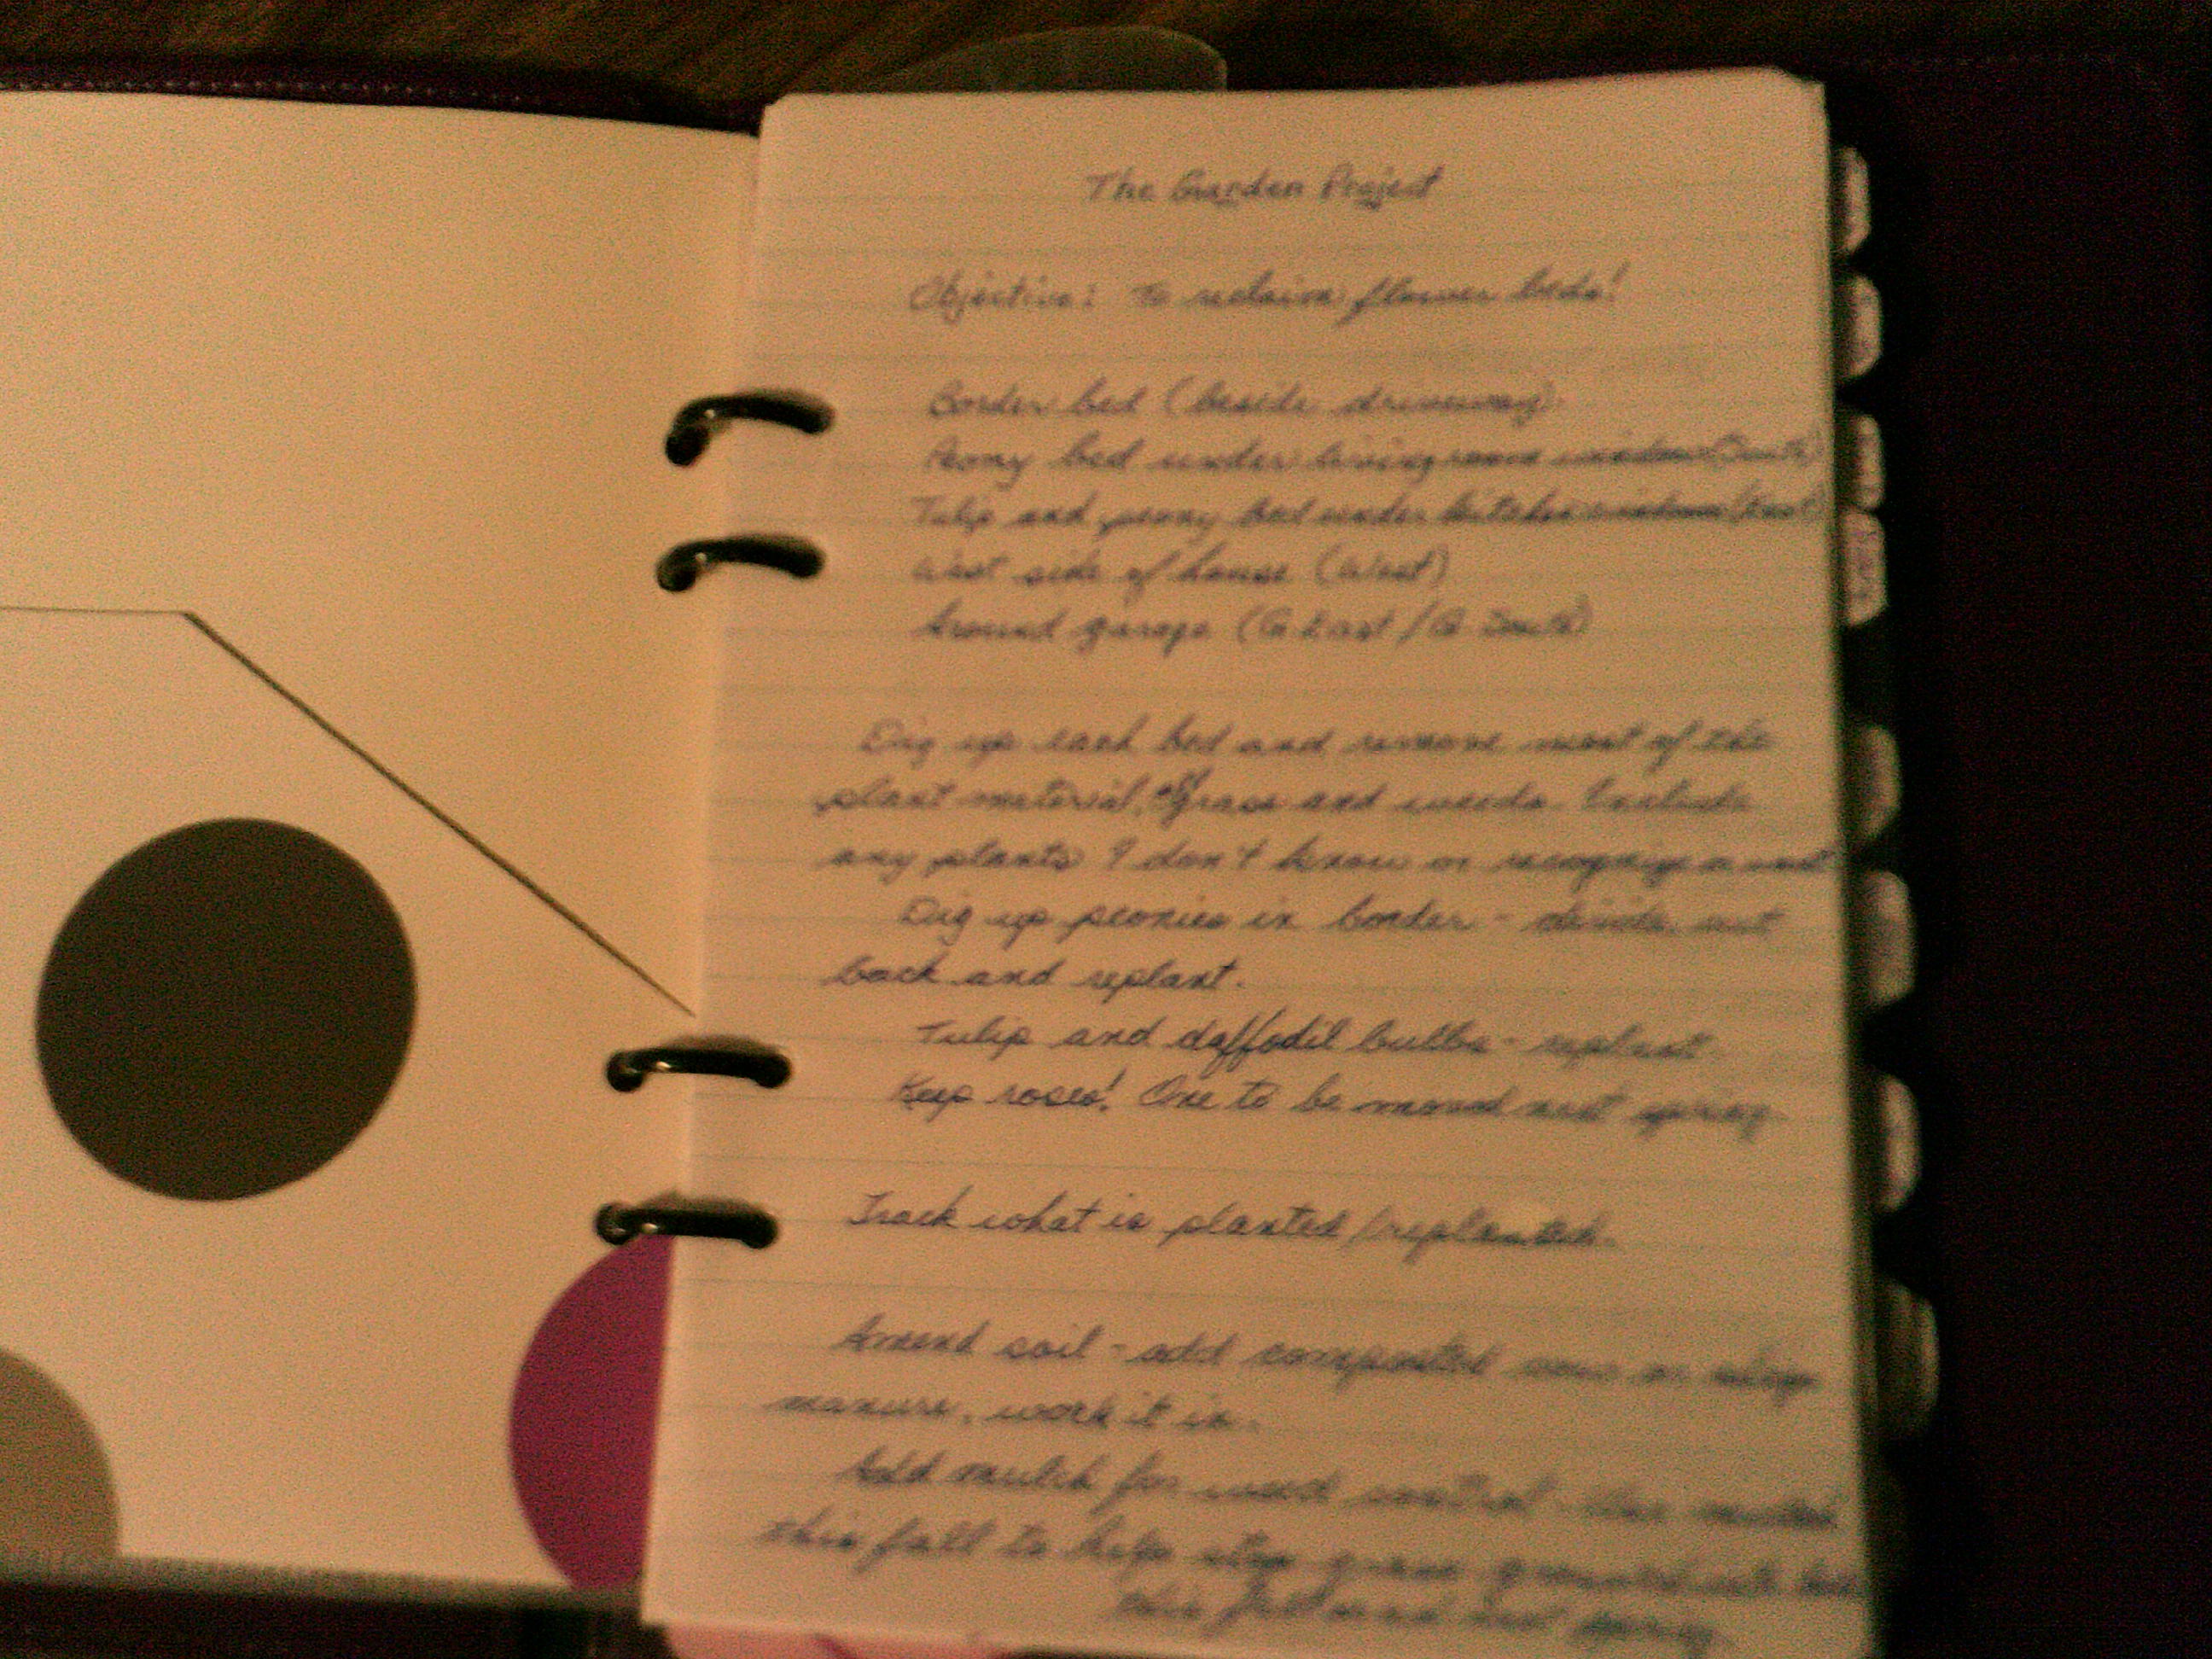 The Garden Project
Objective: To reclaim flower beds!
Border bed (beside driveway)
Peony bed under livingroom window (South)
Tulip and peony bed under kitchen window (East)
West side of house (West)
Around garage (G-East / G-South)
Dig up each bed and remove most of the
plant material, grass and weeds. Include
any plants I don't know or recognize
Dig up peonies in border - divide, cut
back and replant.
Tulip and daffodil bulbs - replant.
Keep roses! One to be moved next spring.
Track what is planted/replanted.
Amend soil - add composted
manure, work it in.
Add mulch for weed control.
this fall to help stop grass
this fall and next spring.